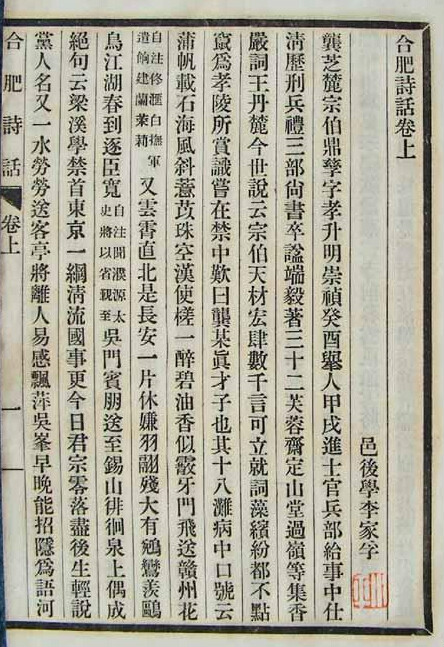 合肥詩話卷上
邑後學李家孚
龔芝麓宗伯鼎孳字孝升明崇禎癸酉舉人甲戌進士官兵部給事中仕
清歷刑兵禮三部尚書卒諡端毅著三十二芙蓉齋定山堂過嶺等集香
嚴詞王丹麓今世說云宗伯天材宏肆數千言可立就詞藻繽紛都不點
竄爲孝陵所賞識嘗在禁中歎曰龔某眞才子也其十八灘病中口號云
蒲帆載石海風斜薏苡珠空漢使槎一醉碧油香似霰牙門飛送贛州花
自注佟滙白撫軍遣餉建蘭茉莉又雲霄直北是長安一片休嫌羽翮殘大有鵷鸞羨鷗
鳥江湖春到逐臣寬自注聞濮源太史將以省覲至吳門賓朋送至錫山徘徊泉上偶成
絕句云梁溪學禁首東京一綱清流國事更今日君宗零落盡後生輕說
黨人名又一水勞勞送客亭將離人易感飄萍吳峯早晚能招隱爲語河
合肥詩話 卷上 一